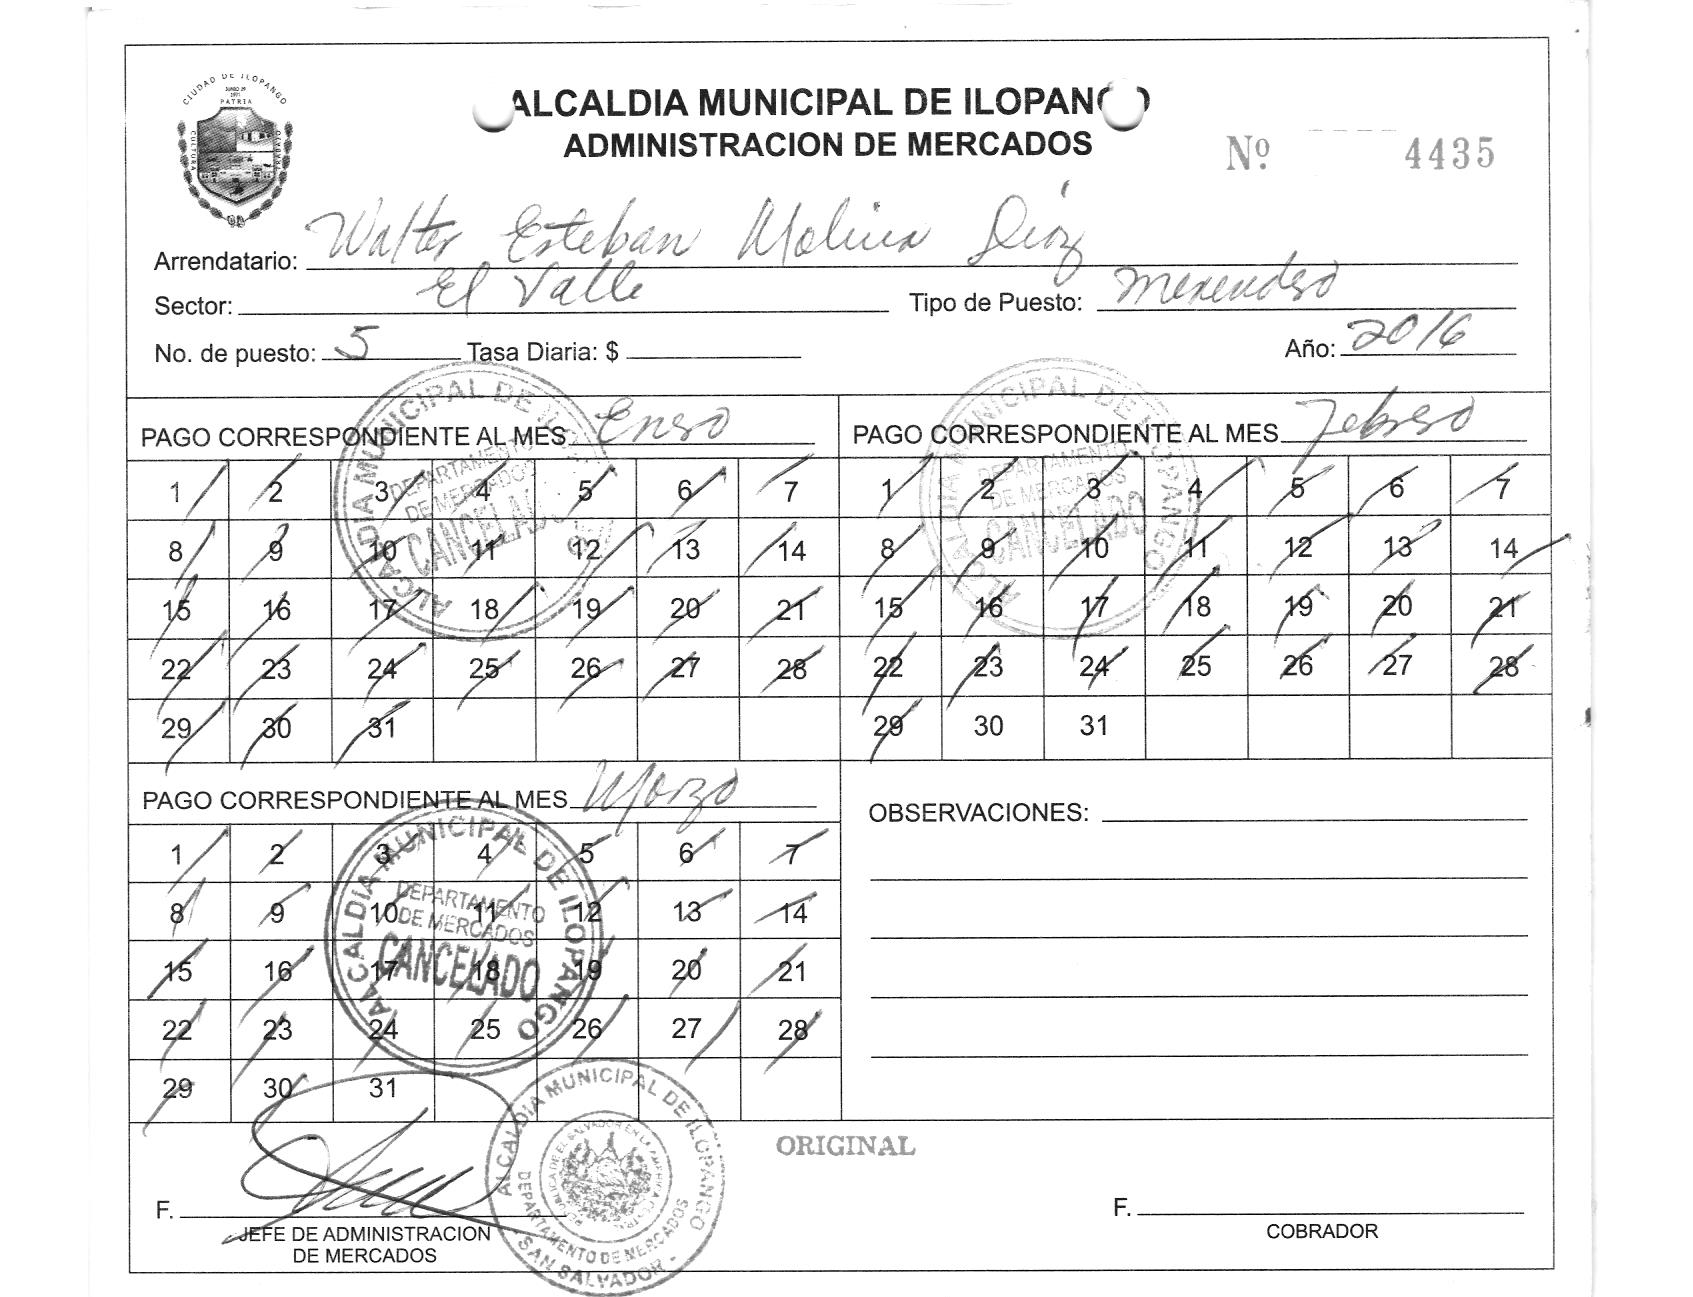 CIUDAD DE ILOPANGO
JUNIO 29
1971
PATRIA
CULTURA
TRABAJO
ALCALDIA MUNICIPAL DE ILOPANGO
ADMINISTRACION DE MERCADOS
Nº 4435
Arrendatario: Walter Esteban Molina Díaz
Sector: El Valle Tipo de Puesto: Merendero
No. de puesto: 5 Tasa Diaria: $ Año: 2016
PAGO CORRESPONDIENTE AL MES Enero
1 2 3 4 5 6 7
8 9 10 11 12 13 14
15 16 17 18 19 20 21
22 23 24 25 26 27 28
29 30 31
ALCALDIA MUNICIPAL DE
DEPARTAMENTO
DE MERCADOS
CANCELADO
PAGO CORRESPONDIENTE AL MES Febrero
1 2 3 4 5 6 7
8 9 10 11 12 13 14
15 16 17 18 19 20 21
22 23 24 25 26 27 28
29 30 31
ALCALDIA MUNICIPAL DE ILOPANGO
DEPARTAMENTO
DE MERCADOS
CANCELADO
PAGO CORRESPONDIENTE AL MES Marzo
1 2 3 4 5 6 7
8 9 10 11 12 13 14
15 16 17 18 19 20 21
22 23 24 25 26 27 28
29 30 31
ALCALDIA MUNICIPAL DE ILOPANGO
DEPARTAMENTO
DE MERCADOS
CANCELADO
OBSERVACIONES:
ORIGINAL
F.
JEFE DE ADMINISTRACION
DE MERCADOS
ALCALDIA MUNICIPAL DE ILOPANGO
REPUBLICA DE EL SALVADOR EN LA AMERICA CENTRAL
DEPARTAMENTO DE MERCADOS
SAN SALVADOR
F.
COBRADOR